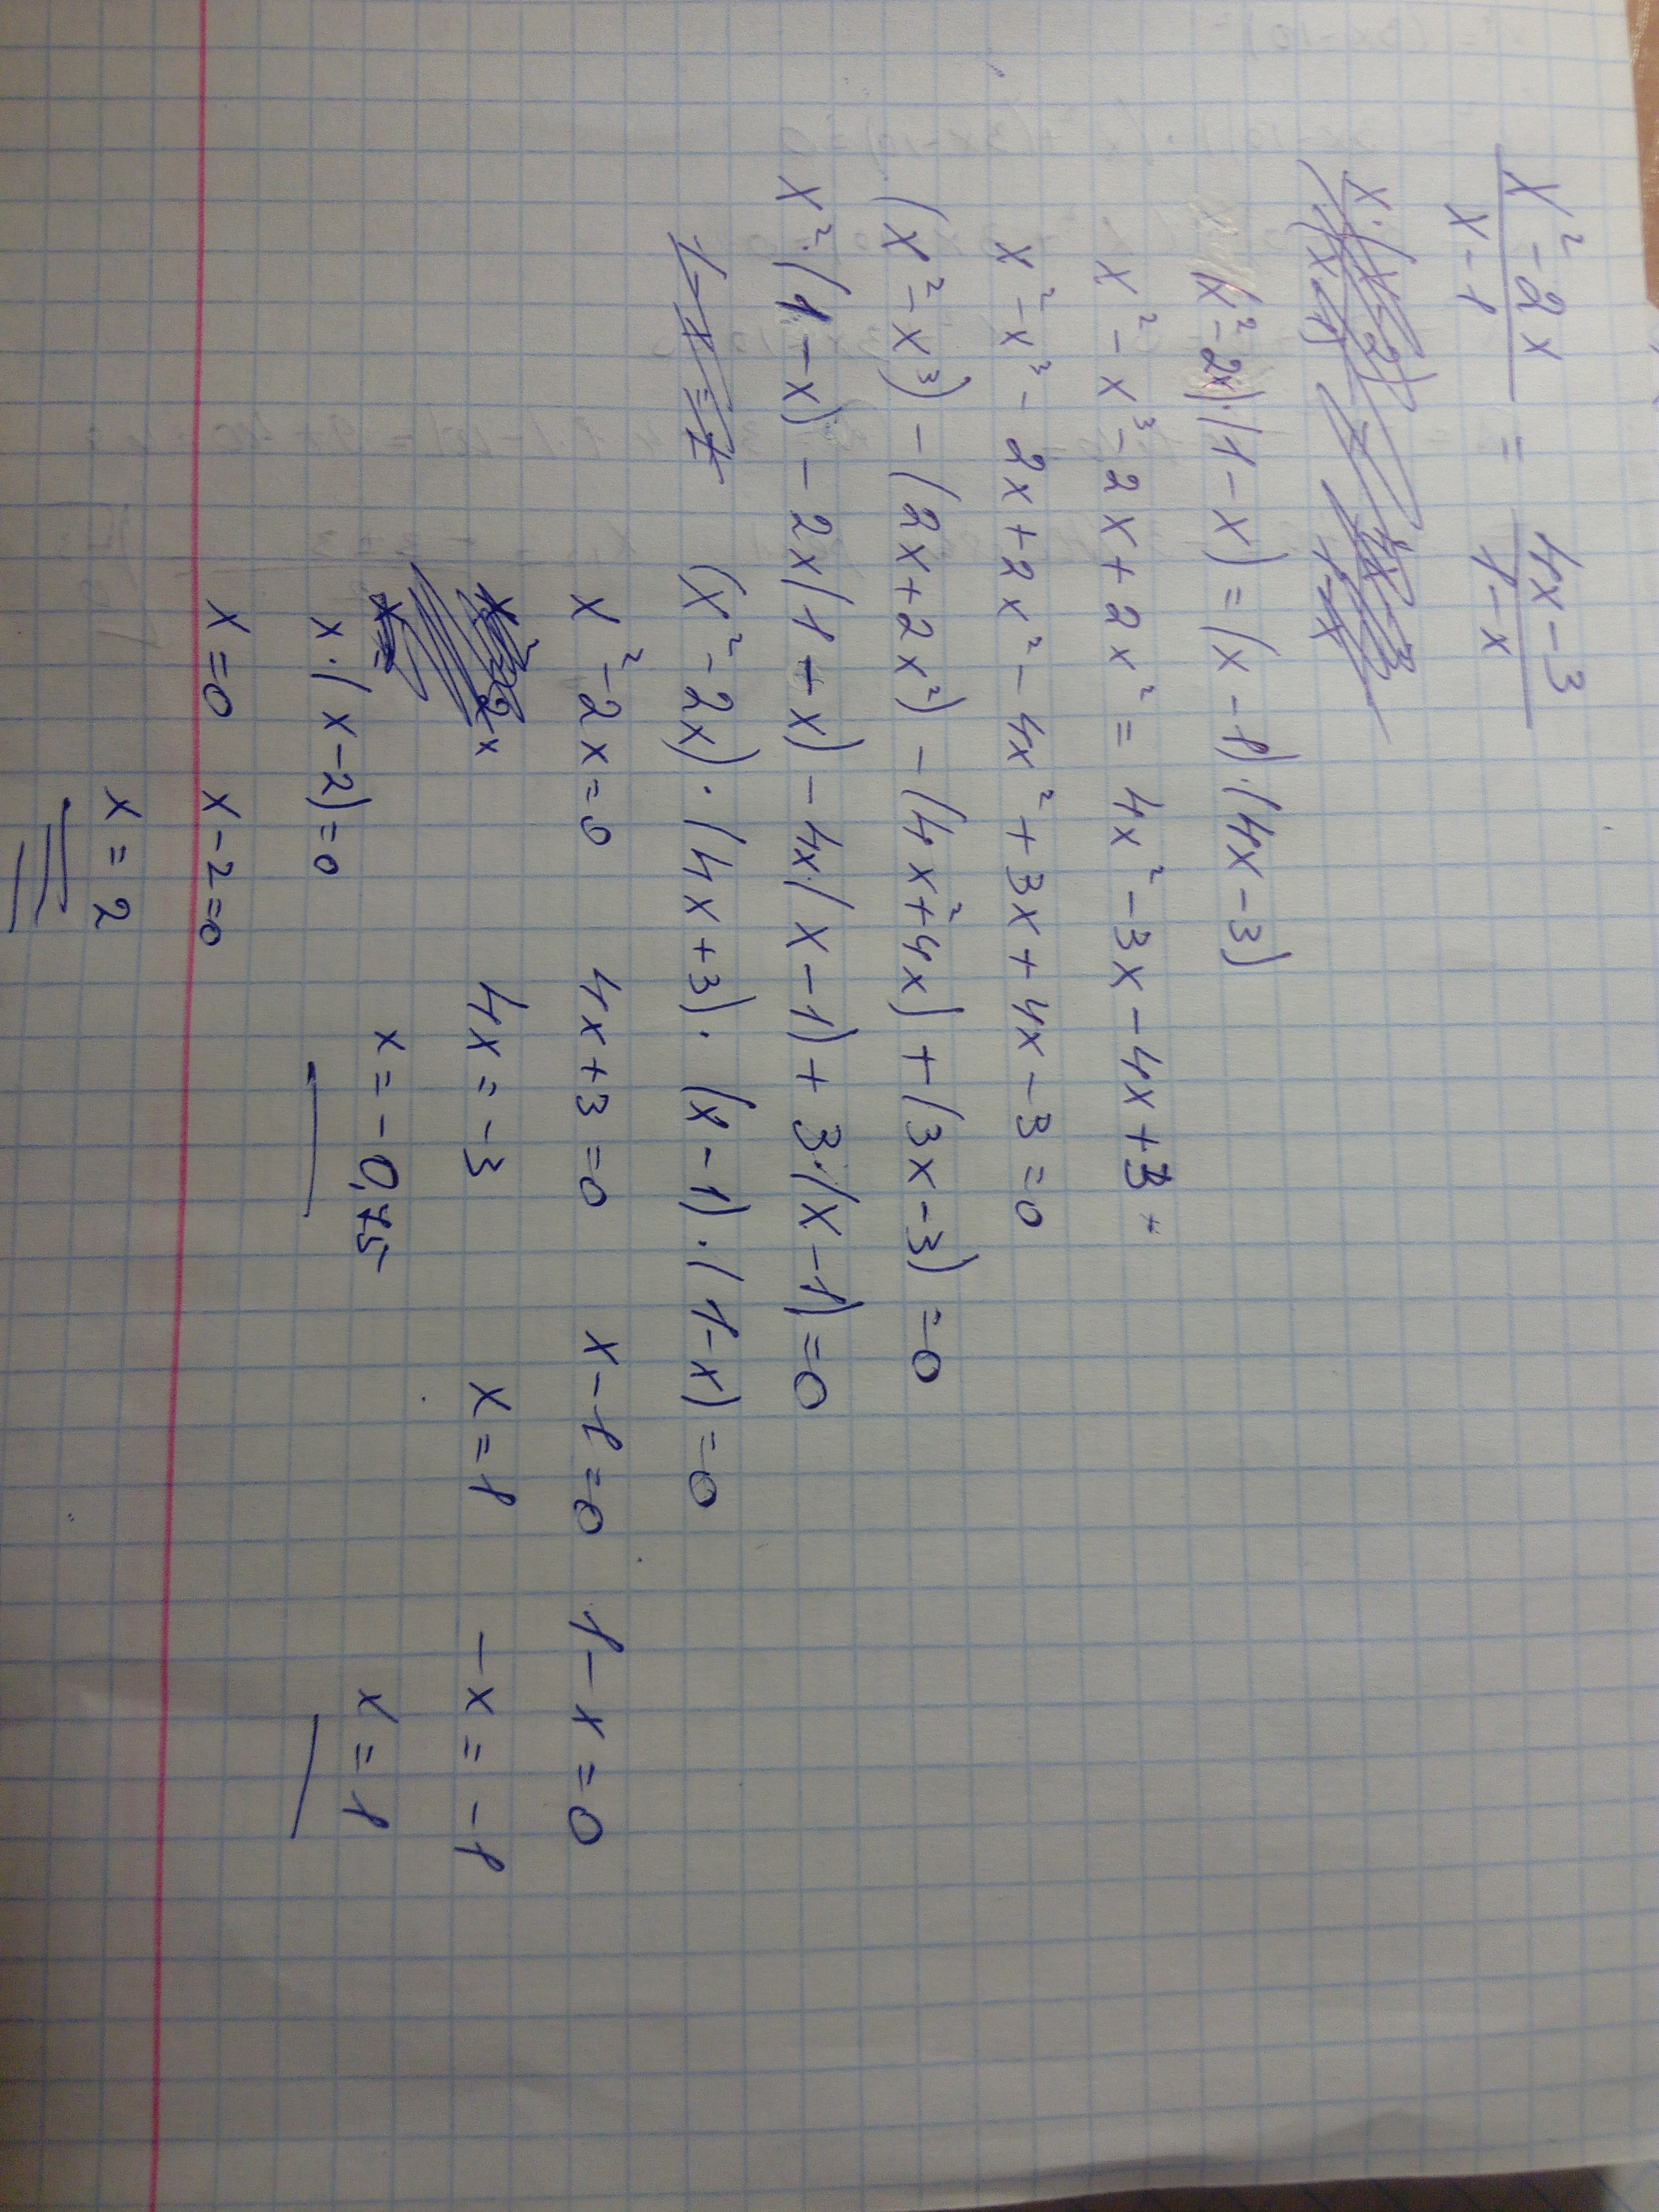 x² - 2x / x - 1 = 4x - 3 / 1 - x
(x² - 2x)·(1 - x) = (x - 1)·(4x - 3)
x² - x³ - 2x + 2x² = 4x² - 3x - 4x + 3
x² - x³ - 2x + 2x² - 4x² + 3x + 4x - 3 = 0
(x² - x³) - (2x + 2x²) - (4x² + 4x) + (3x - 3) = 0
x²·(1 - x) - 2x(1 + x) - 4x·(x - 1) + 3·(x - 1) = 0
(x² - 2x)·(4x + 3)·(x - 1)·(1 - x) = 0
x² - 2x = 0 4x + 3 = 0 x - 1 = 0 1 - x = 0
4x = -3 x = 1 -x = -1
x = -0,75 x = 1
x·(x - 2) = 0
x = 0 x - 2 = 0
x = 2